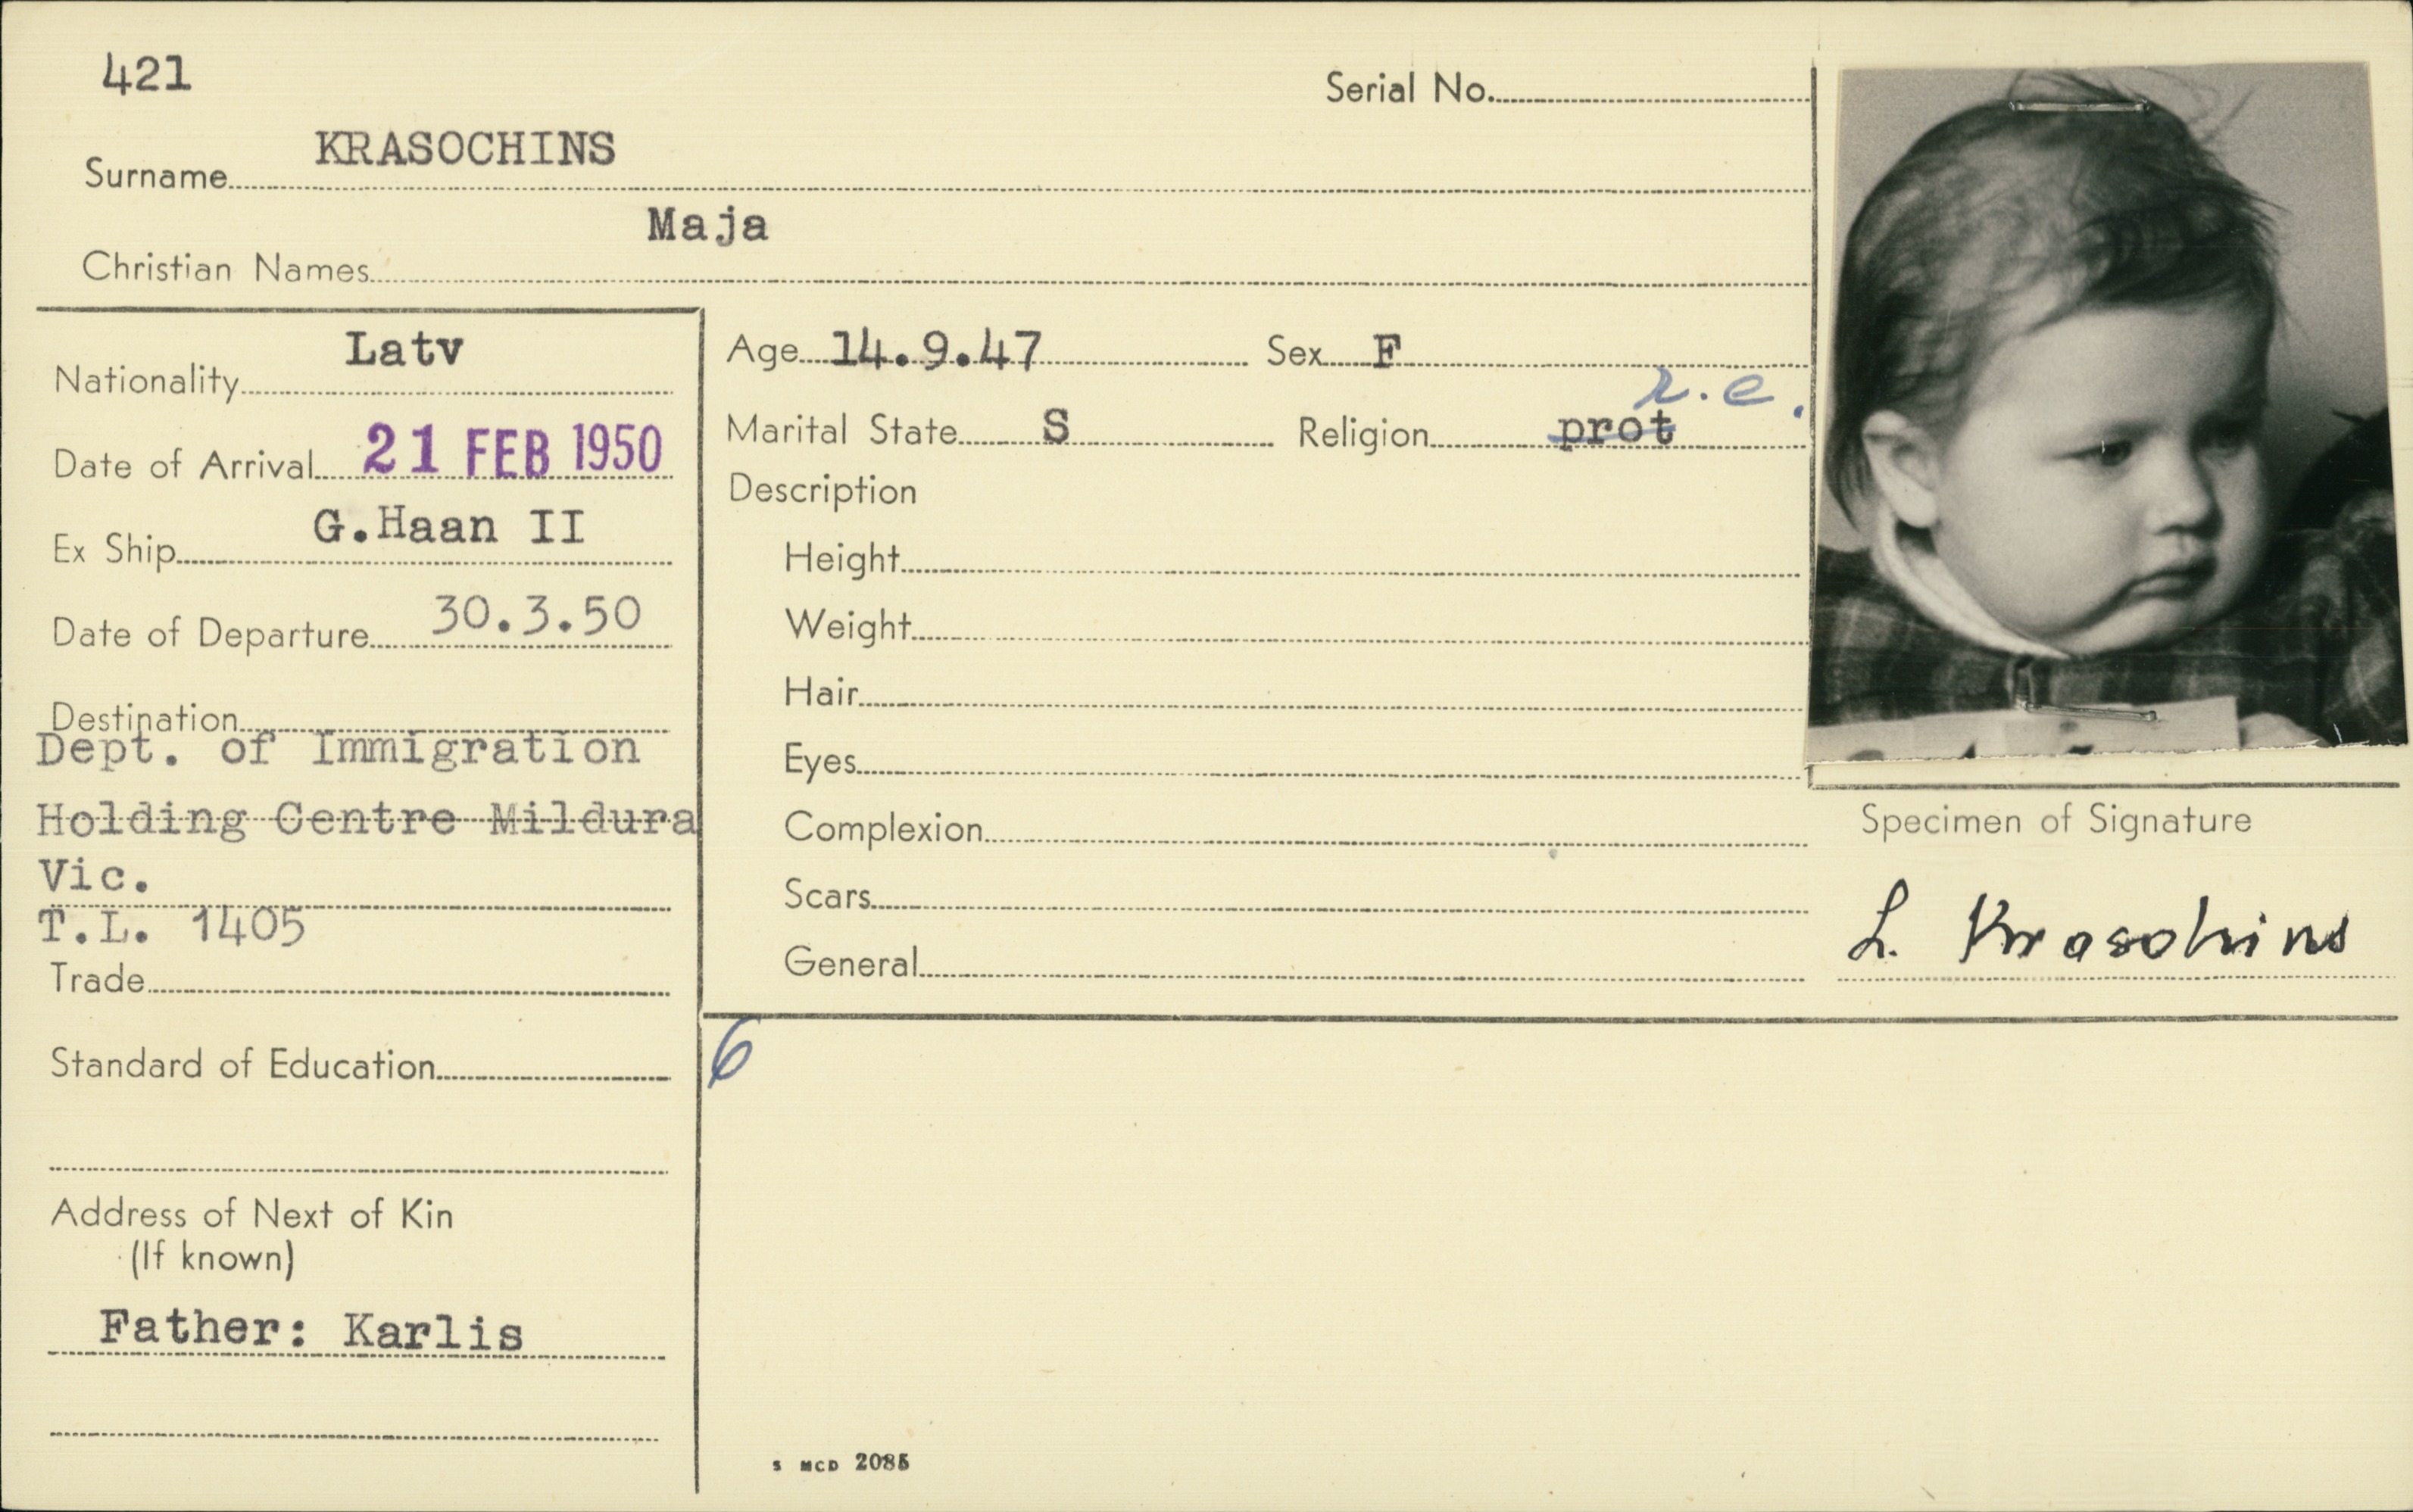 421
Serial No.
Surname KRASOCHINS
Christian Names Maja
Nationality Latv
Date of Arrival 21 FEB 1950
Ex Ship G.Haan II
Date of Departure 30.3.50
Destination
Dept. of Immigration
Holding Centre Mildura
Vic.
T.L. 1405
Trade
Standard of Education
Address of Next of Kin
(If known)
Father: Karlis
Age 14.9.47 Sex F
r.c.
Marital State S Religion prot
Description
Height
Weight
Hair
Eyes
Complexion
Scars
General
Specimen of Signature
L. Krasohins
6
S MCD